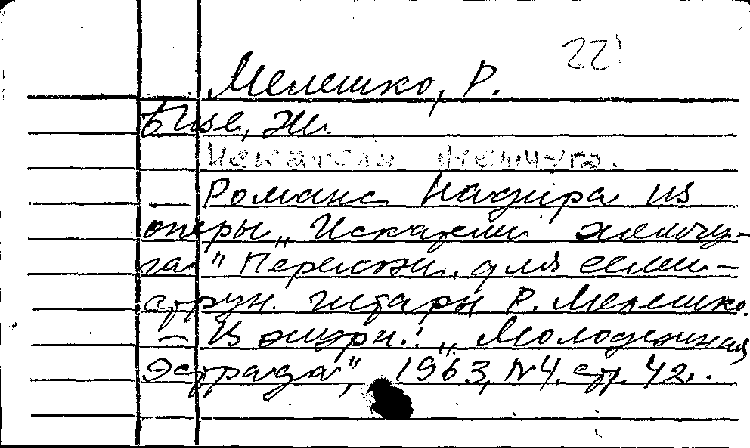 22
Мелешко, Р.
Бизе, Ж.
Искатели жемчуга.
— Романс Надира из
оперы „Искатели жемчу-
га" Перелож. для семи-
струн. гитары Р. Мелешко.
— В журн.: „Молодежная
Эстрада", 1963, №4. стр. 42.